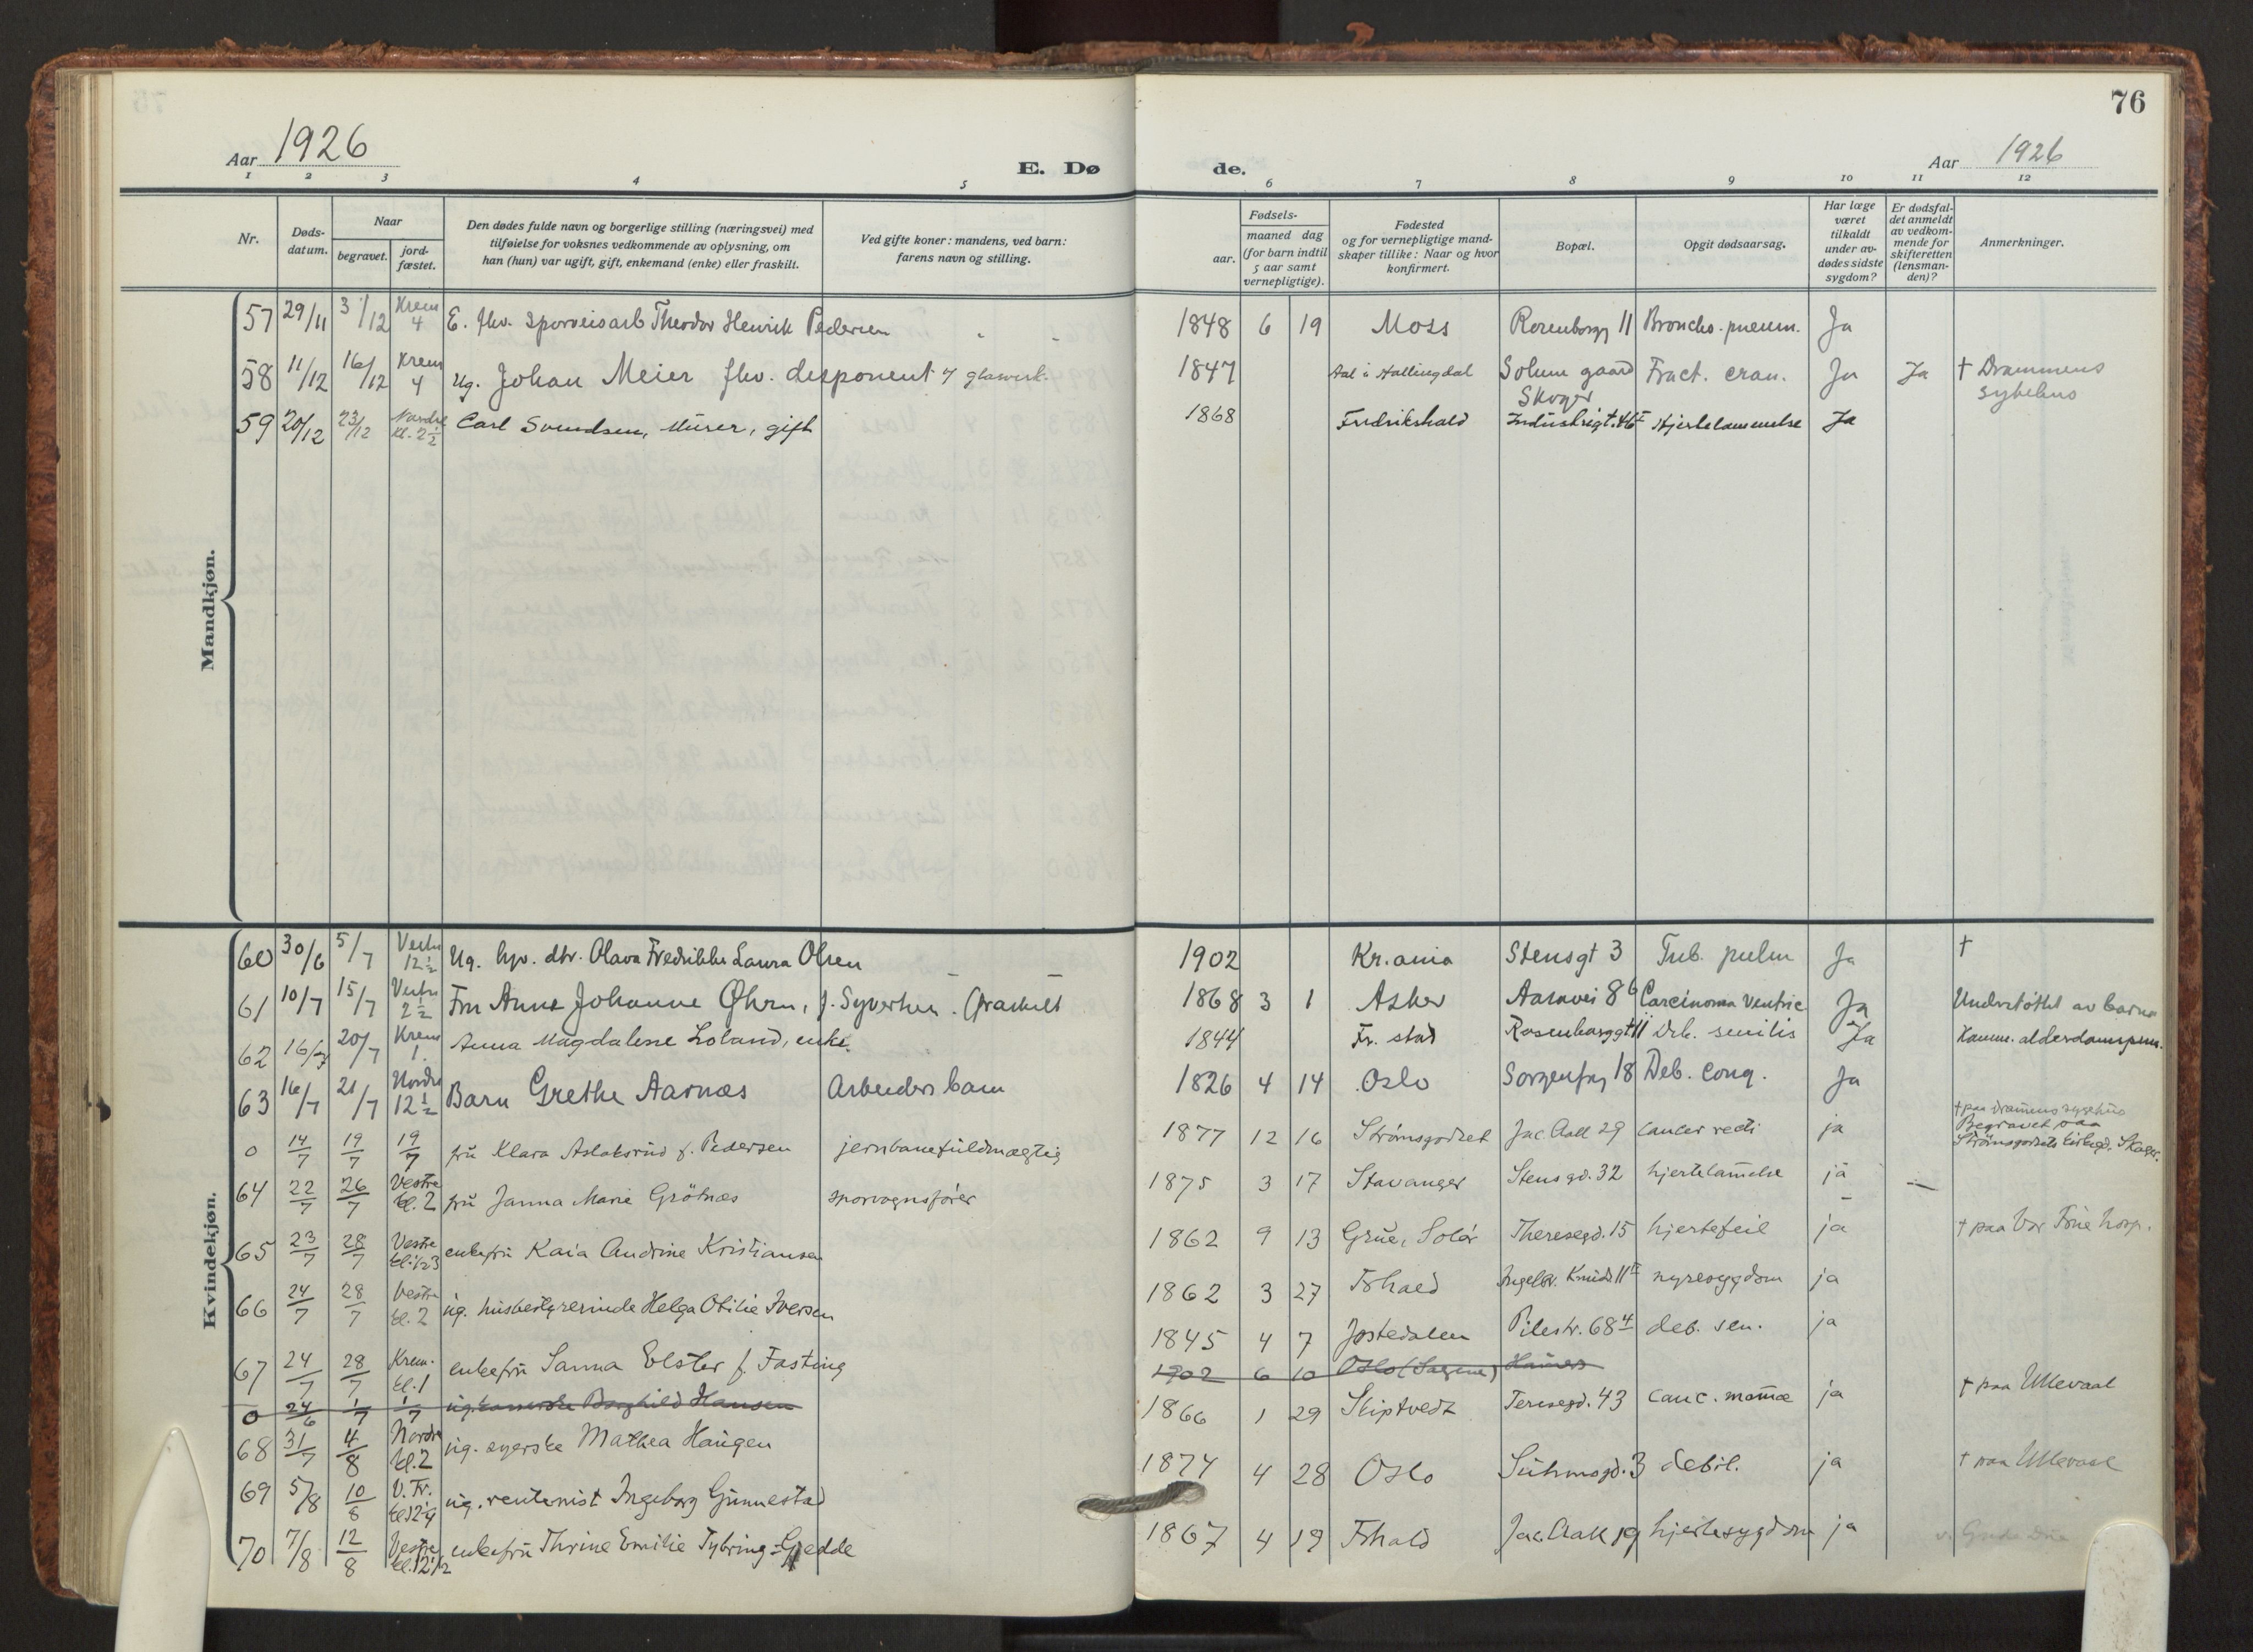 76
Aar 1926
E. Dø de.
Aar 1926
1 2 3 4 5 6 7 8 9 10 11 12
Nr.
Døds-datum.
Naar
begravet.
jord-fæstet.
Den dødes fulde navn og borgerlige stilling (næringsvei) med
tilføielse for voksnes vedkommende av oplysning, om
han (hun) var ugift, gift, enkemand (enke) eller fraskilt.
Ved gifte koner: mandens, ved barn:
farens navn og stilling.
Fødsels-
aar.
maaned dag
(for barn indtil
5 aar samt
vernepligtige).
Fødested
og for vernepligtige mand-
skaper tillike: Naar og hvor
konfirmert.
Bopæl.
Opgit dødsaarsag.
Har læge
været
tilkaldt
under av-
dødes sidste
sygdom?
Er dødsfal-
det anmeldt
av vedkom-
mende for
skifteretten
(lensman-
den)?
Anmerkninger.
Mandkjøn.
57 29/11 31/12 Krem 4 E. fhv. sporveisarb Theodor Henrik Pedersen 1848 6 19 Moss Rosenborgg 11 Broncho-pneum. Ja
58 11/12 16/12 Krem 4 Ug. Johan Meier fhv. disponent v glasverk. 1847 Aal i Hallingdal Solum gaard Skoger Fract. cran. Ja Ja † Drammens sykehus
59 20/12 23/12 Nordre kl. 2½ Carl Svendsen, Murer, gift 1868 Fredrikshald Industrigt. 46 I Hjertelammelse Ja
Kvindekjøn.
60 30/6 5/7 Vestre 12½ Ug. hjv. dtr. Olava Fredrikke Laura Olsen 1902 Kr.ania Stensgt 3 Tub. pulm Ja †
61 10/7 15/7 Vestre 2½ Fru Anne Johanne Øhrn, f. Syvertsen. (fraskilt 1868 3 1 Asker Aasavei 8 b Carcinoma Ventric Ja Understøttet av barna
62 16/7 20/7 Krem 1. Anna Magdalene Loland, enke. 1844 Fr. stad Rosenborggt 11 Deb. senilis Ja Komm. alderdomspens.
63 16/7 21/7 Nordre 12½ Barn Grethe Aarnæs Arbeiders barn 1826 4 14 Oslo Sorgenfrig 18 Deb. cong. Ja
0 14/7 19/7 19/7 fru Klara Aslaksrud f. Pedersen jernbanefuldmægtig 1877 12 16 Strømsgodset Jac. Aall 29 cancer recti ja † paa Dramens sygehus Begravet paa Strømsgodsets kirkegd. Skoger.
64 22/7 26/7 Vestre kl. 2 fru Janna Marie Grötnæs sporvognsfører 1875 3 17 Stavanger Stensgd. 32 hjertelamelse ja —
65 23/7 28/7 Vestre kl. ½3 enkefru Kaia Andrine Kristiansen 1862 9 13 Grue, Solør Theresegd. 15 hjertefeil ja † paa Vor Frue hosp.
66 24/7 28/7 Vestre kl. 2 ug. husbestyrerinde Helga Otilie Iversen 1862 3 27 Frhald Ingelbr. Knuds 11 II nyresygdom ja
67 24/7 28/7 Krem. kl. 1 enkefru Sanna Elster f. Fasting 1845 4 7 Jostedalen Pilestr. 68 4 deb. sen. ja
0 24/6 1/7 1/7 ug. Borghild Hansen 1902 6 10 Oslo (Sagene)
68 31/7 4/8 Nordre kl. 2 ug. syerske Mathea Haugen 1866 1 29 Skiptvedt Teresegd. 43 canc. mamæ ja † paa Ullevaal
69 5/8 10/8 V. Fr. ug. rentenist Ingeborg Gunnestad 1874 4 28 Oslo Suhmsgd. 3 debil. ja † paa Ullevaal
70 7/8 12/8 Vestre kl. 12½ enkefru Thrine Emilie Tybring-Gjedde 1867 4 19 Frhald Jac. Aall 19 hjertesygdom ja